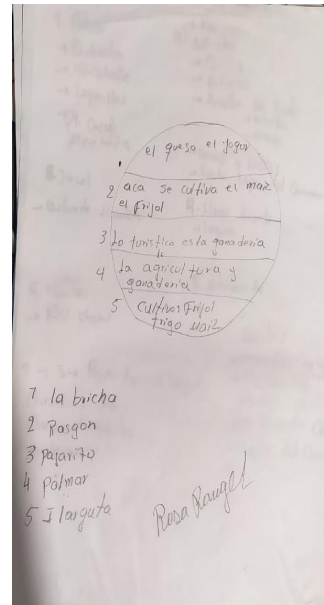 el queso el yogur
2 aca se cultiva el maiz
el frijol
3 Lo turistico es la ganaderia
4 La agricultura y
ganaderia
5 Cultivos Frijol
trigo Maiz
1 la bricha
2 Rasgon
3 pajarito
4 palmar
5 Ilarguta
Rosa Rangel